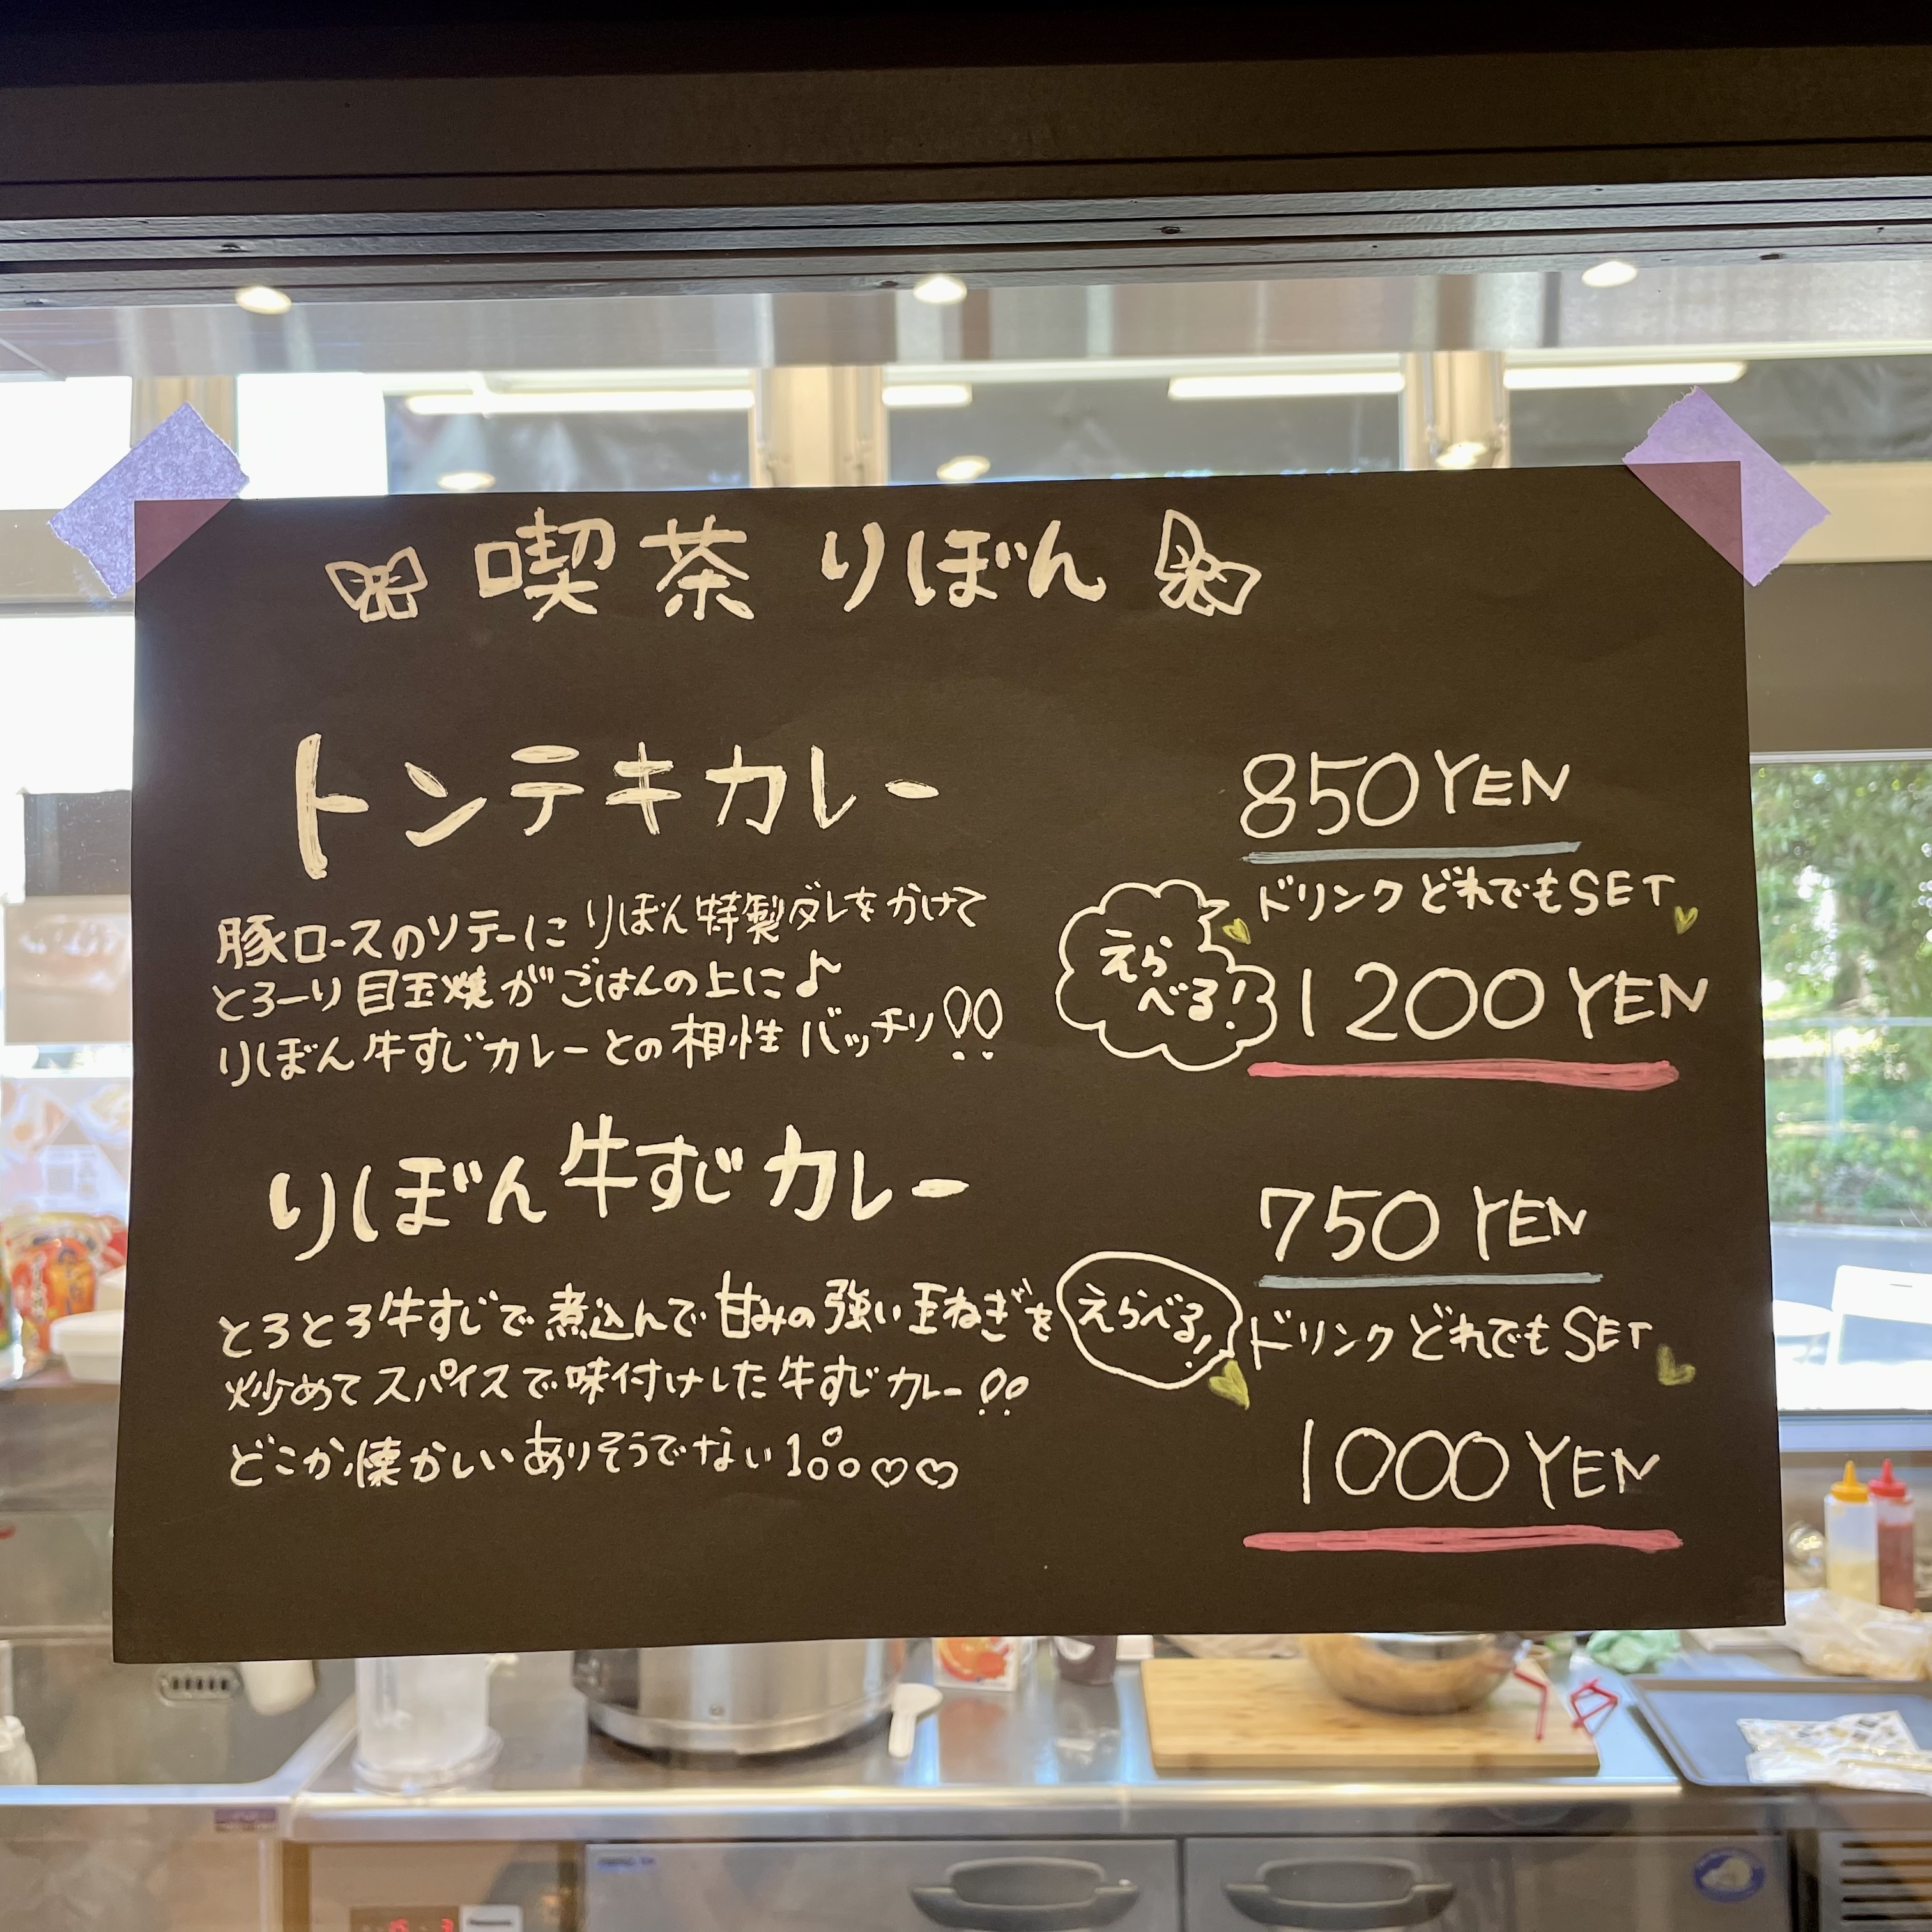 喫茶りぼん
トンテキカレー
850YEN
豚ロースのソテーにりぼん特製ダレをかけて
とろーり目玉焼がごはんの上に♪
りぼん牛すじカレーとの相性バッチリ!!
えらべる!
ドリンクどれでもSET
1200YEN
りぼん牛すじカレー
750YEN
とろとろ牛すじで煮込んで甘みの強い玉ねぎを
炒めてスパイスで味付けした牛すじカレー!!
どこか懐かしいありそうでない1品♡♡
えらべる!
ドリンクどれでもSET
1000YEN